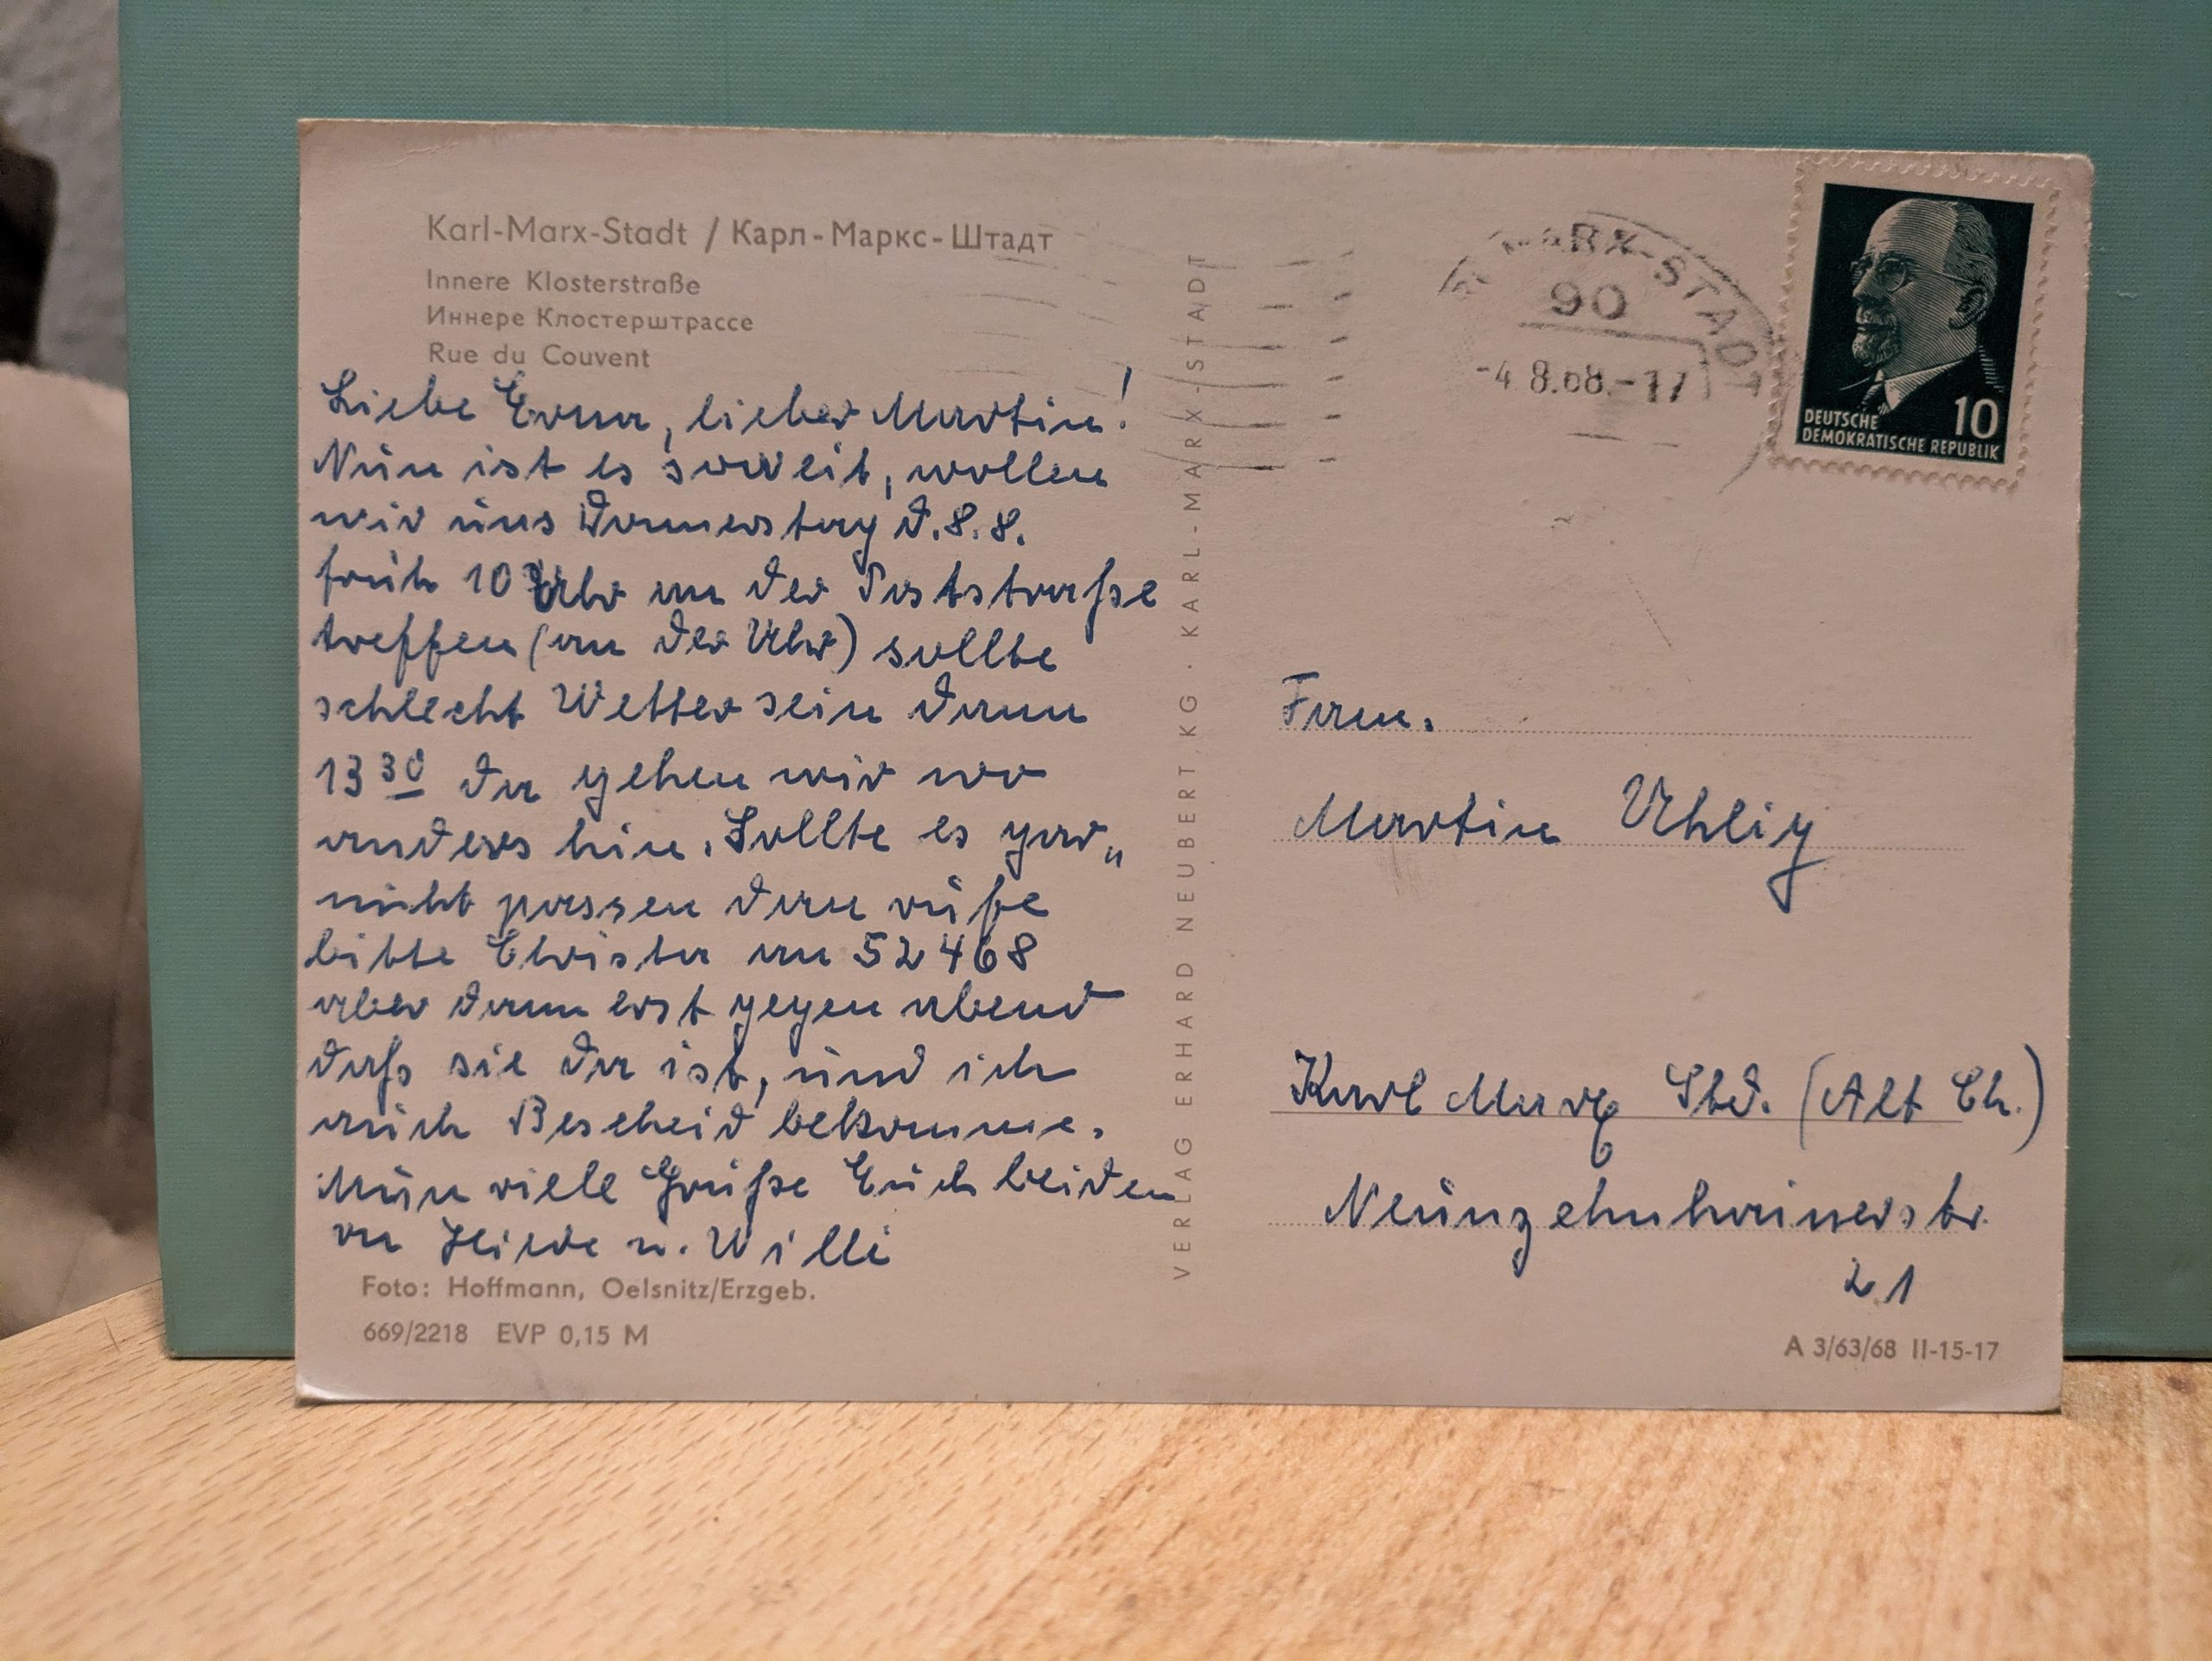 Karl-Marx-Stadt / Карл-Маркс-Штадт
Innere Klosterstraße
Иннере Клостерштрассе
Rue du Couvent
Liebe Erna, lieber Martin!
Nun ist es soweit, wollen
wir uns Donnerstag d. 8. 8.
früh 10 Uhr an der Poststraße
treffen (an der Uhr) sollte
schlecht Wetter sein dann
13 30 da gehen wir wo
anders hin. Sollte es gar„
nicht passen dann rufe
bitte Christa an 52468
aber dann erst gegen abend
daß sie da ist, und ich
auch Bescheid bekomme.
Nun viele Grüße Euch beiden
u. Willi
Foto: Hoffmann, Oelsnitz/Erzgeb.
669/2218 EVP 0,15 M
VERLAG ERHARD NEUBERT KG · KARL-MARX-STADT
MARX-STADT
90
-4.8.68.-17
DEUTSCHE
DEMOKRATISCHE REPUBLIK
10
Fam.
Martin Uhlig
Karl Marx Std. (Alt Ch.)
Neunzehnhainerstr.
21
A 3/63/68 II-15-17